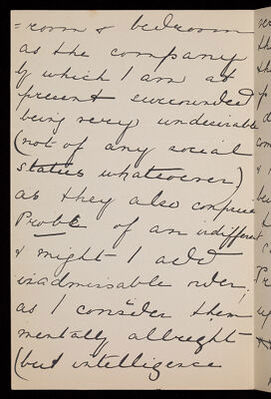 =room & bedroom
as the company
by which I am at
present surrounded
being very undesirable
(not of any social
status whatsoever)
as they also comprise
Probs of an indifferent
& might I add
inadmissable order,
as I consider them
mentally allright
(but intelligence